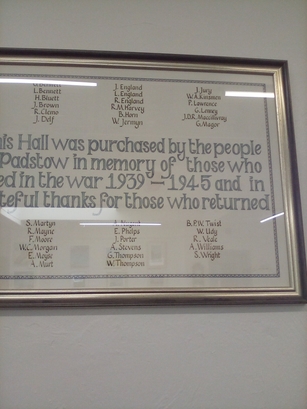 L. Bennett
H. Bluett
J. Brown
R. Cleino
J. Daf
J. England
L. England
R. England
R.M. Harvey
B. Horn
W. Jermyn
J. Jury
W.A. Kinsman
F. Lawrence
G. Lenney
J.D.R. Macculvray
G. Magor
Hall was purchased by the people
Padstow in memory of those who
in the war 1939 — 1945 and in
thanks for those who returned
S. Martyn
R. Mayne
F. Moore
W.C. Morgan
E. Moyle
A. Murt
E. Phelps
J. Porter
A. Stevens
G. Thompson
W. Thompson
B.P.W. Twist
W. Udy
R. Veale
A. Williams
S. Wright